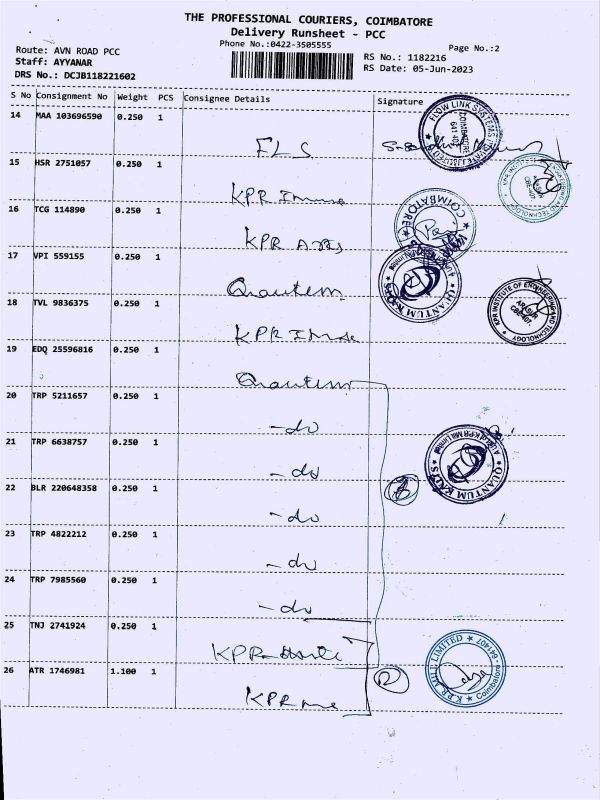 THE PROFESSIONAL COURIERS, COIMBATORE
Delivery Runsheet - PCC
Phone No.:0422-3505555
Page No.:2
Route: AVN ROAD PCC
Staff: AYYANAR
DRS No.: DCJB118221602
RS No.: 1182216
RS Date: 05-Jun-2023
S No Consignment No Weight PCS Consignee Details Signature
14 MAA 103696590 0.250 1
FLS
FLOW LINK SYSTEMS PRIVATE LIMITED COIMBATORE 641 407
15 HSR 2751057 0.250 1
KPR
KPR INSTITUTE OF ENGINEERING AND TECHNOLOGY ARASUR CBE-407.
16 TCG 114890 0.250 1
KPR Arts
COIMBATORE
17 VPI 559155 0.250 1
Quantum
QUANTUM KNITS
18 TVL 9836375 0.250 1
KPR
KPR INSTITUTE OF ENGINEERING AND TECHNOLOGY ARASUR CBE-407.
19 EDQ 25596816 0.250 1
Quantum
20 TRP 5211657 0.250 1
-do
21 TRP 6638757 0.250 1
-do
A Unit of KPR Mill Limited QUANTUM KNITS
22 BLR 220648358 0.250 1
-do
8
23 TRP 4822212 0.250 1
-do
24 TRP 7985560 0.250 1
-do
25 TNJ 2741924 0.250 1
KPR
26 ATR 1746981 1.100 1
KPR
2
K.P.R. MILL LIMITED Coimbatore - 641407